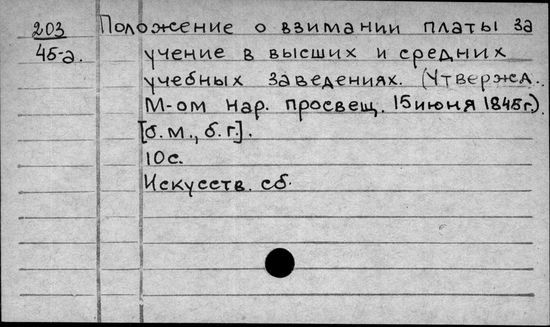 203 Положение о взимании платы за
45-а. учение в высших и средних
учебных заведениях. (Утвержд.
М-ом нар. просвещ. 15 июня 1845г.)
[б.м., б.г.].
10с.
Искусств. сб.